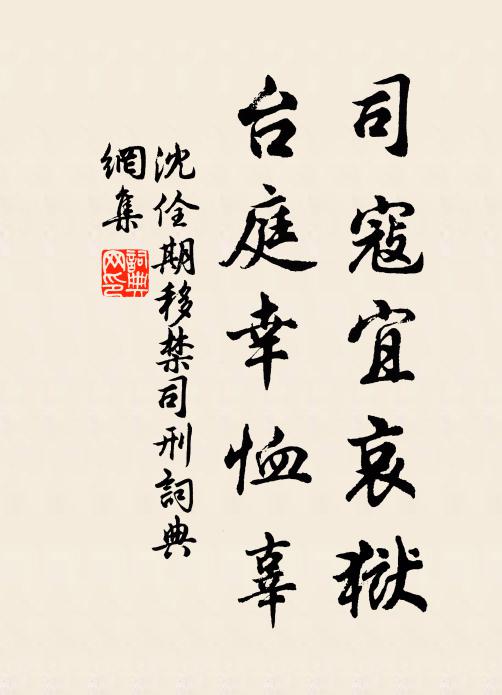 司寇宜哀獄
台庭幸恤辜
沈佺期移禁司刑詞典
網集
詞典
网印